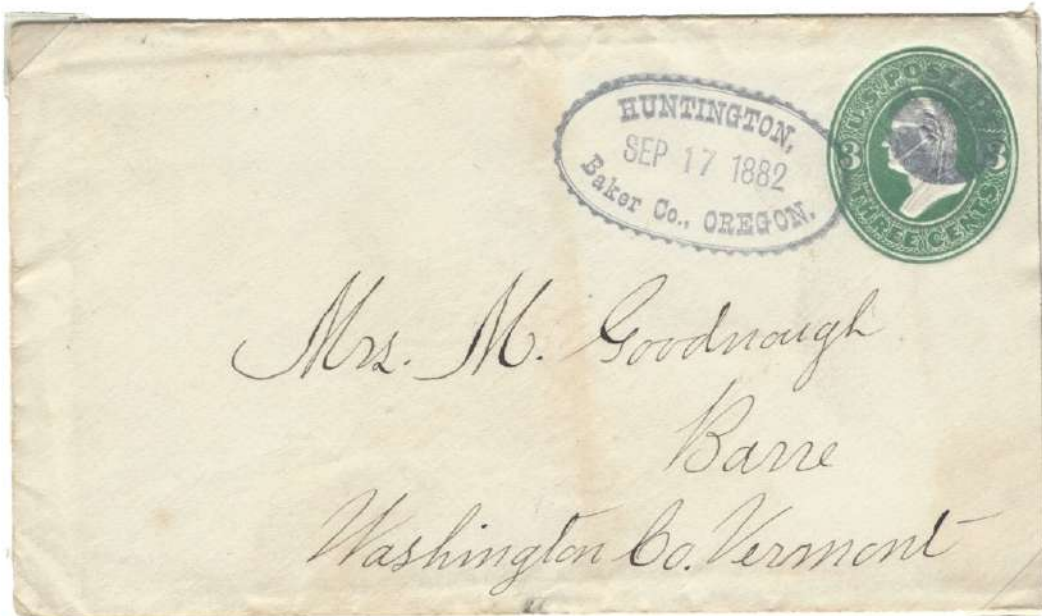 HUNTINGTON,
SEP 17 1882
Baker Co., OREGON.
U.S. POSTAGE
3 3
THREE CENTS
Mrs. M. Goodnough
Barre
Washington Co. Vermont